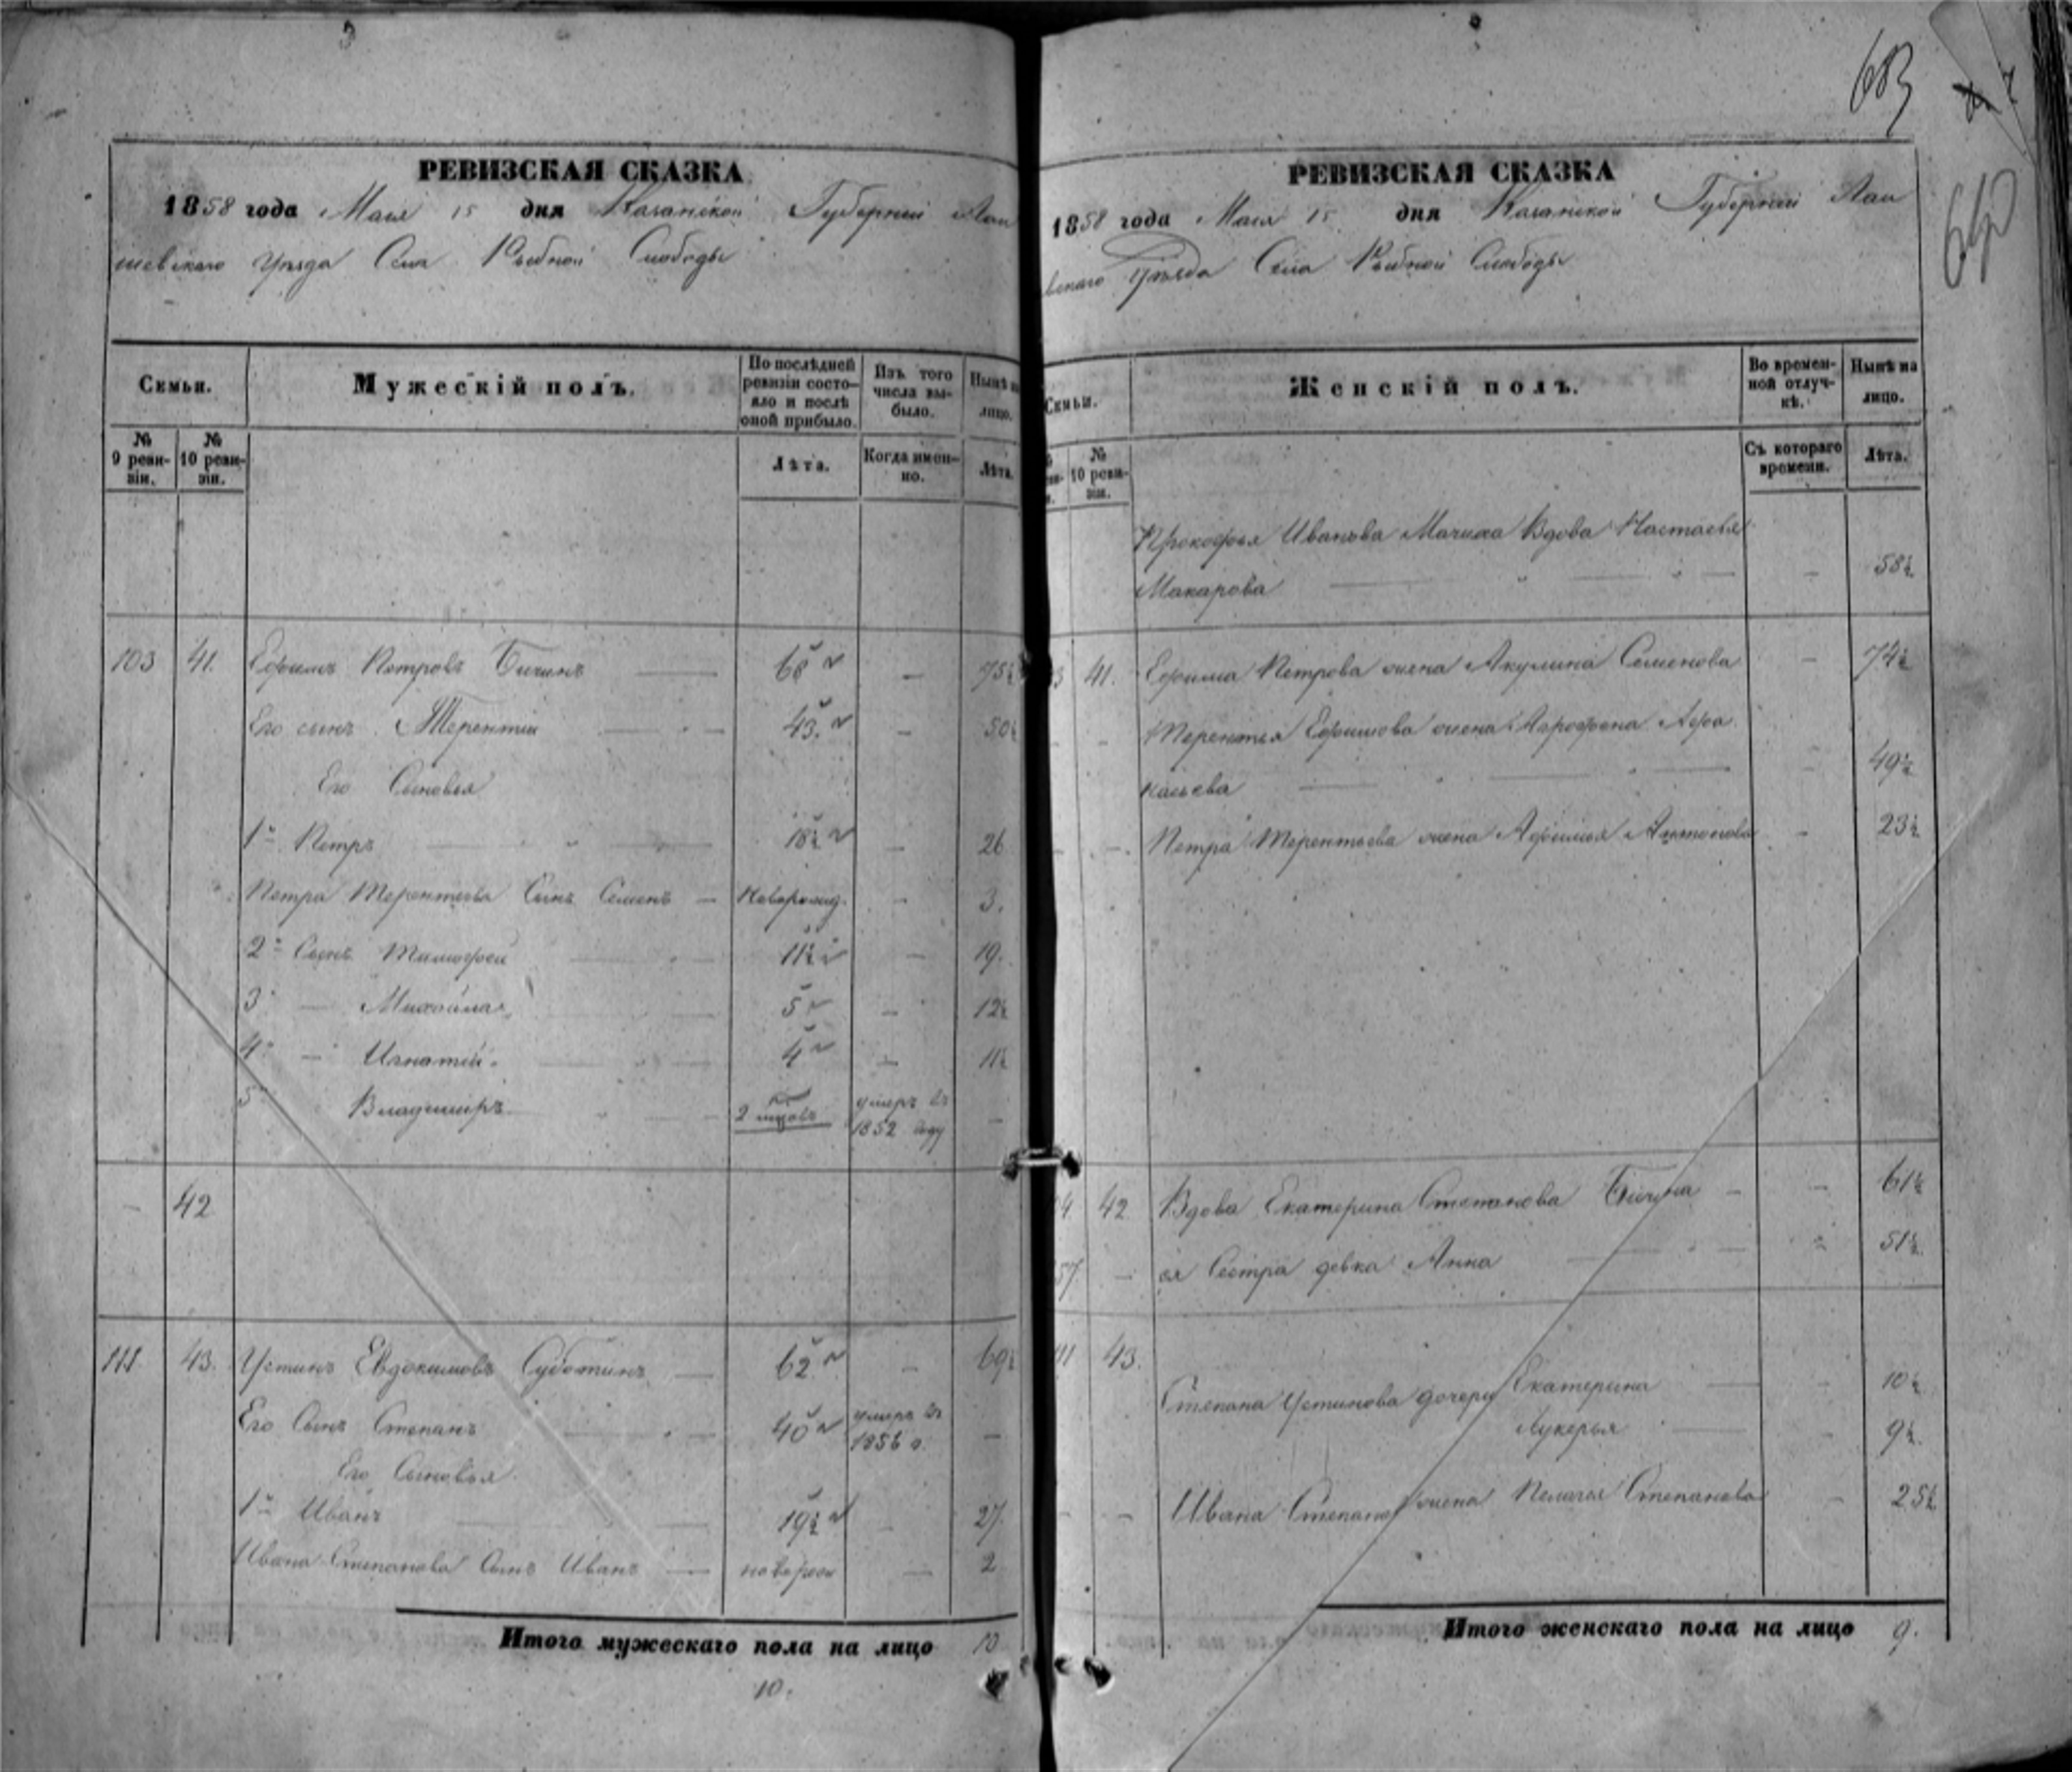 РЕВИЗСКАЯ СКАЗКА
1858 года Мая 15 дня Казанской Губерніи Лаи
шевскаго Уѣзда Села Рыбной Слободы
Семьи.
Мужескій полъ.
По послѣдней ревизіи состояло и послѣ оной прибыло.
Изъ того числа выбыло.
Нынѣ на лицо.
№ 9 ревизіи.
№ 10 ревизіи.
Лѣта.
Когда именно.
Лѣта.
103 41. Ефимъ Петровъ Бичинъ — 68 — 75½
Его сынъ Терентій — 43 — 50½
Его Сыновья
1й Петръ — 18½ — 26
Петра Терентьева Сынъ Семенъ — Новорожд. — 3.
2й Сынъ Тимофей — 11½ — 19.
3й — Михайла — 5 — 12½
4й — Игнатій — 4 — 11½
5й Владимиръ — 2 мцовъ умеръ въ 1852 году —
— 42
111. 43. Устинъ Евдокимовъ Суботинъ — 62 — 69½
Его Сынъ Степанъ — 40 умеръ въ 1856 г. —
Его Сыновья
1й Иванъ — 19½ — 27.
Ивана Степанова Сынъ Иванъ — новорож — 2
Итого мужескаго пола на лицо 10
10.
683
РЕВИЗСКАЯ СКАЗКА
1858 года Мая 15 дня Казанской Губерніи Лаи
вскаго Уѣзда Села Рыбной Слободы
Семьи.
Женскій полъ.
Во временной отлучкѣ.
Нынѣ на лицо.
№ 10 ревизіи.
Съ котораго времени.
Лѣта.
Прокофья Иванова Мачиха Вдова Настасья
Макарова — — 58½
3 41. Ефима Петрова жена Акулина Семенова — 74½
Терентья Ефимова жена Агрофена Афо
насьева — — 49½
Петра Терентьева жена Афимья Антонова — 23½
04. 42. Вдова Екатерина Степанова Бичина — — 61½
57. — ея Сестра девка Анна — 51½
11 43. Степана Устинова дочери Екатерина — — 10½
Лукерья — — 9½
— — Ивана Степанова жена Пелагея Степанова — 25½
Итого женскаго пола на лицо 9.